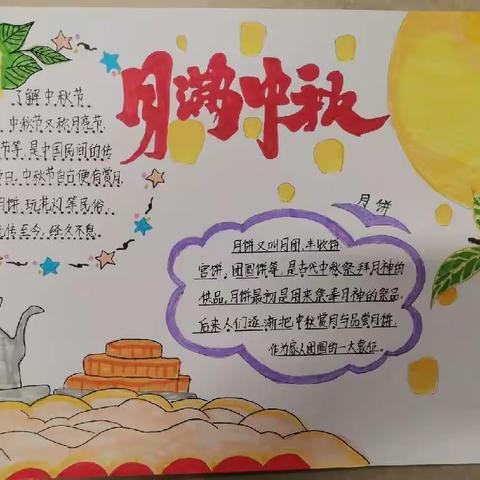 月满中秋
了解中秋节
中秋节又称月亮节
节等,是中国民间的传
日,中秋节自古便有赏月
月饼,玩花灯等民俗,
流传至今,经久不息
月饼
月饼又叫月团、丰收饼
宫饼、团圆饼等,是古代中秋祭拜月神的
供品,月饼最初是用来祭奉月神的祭品,
后来人们逐渐把中秋赏月与品尝月饼,
作为家人团圆的一大象征。